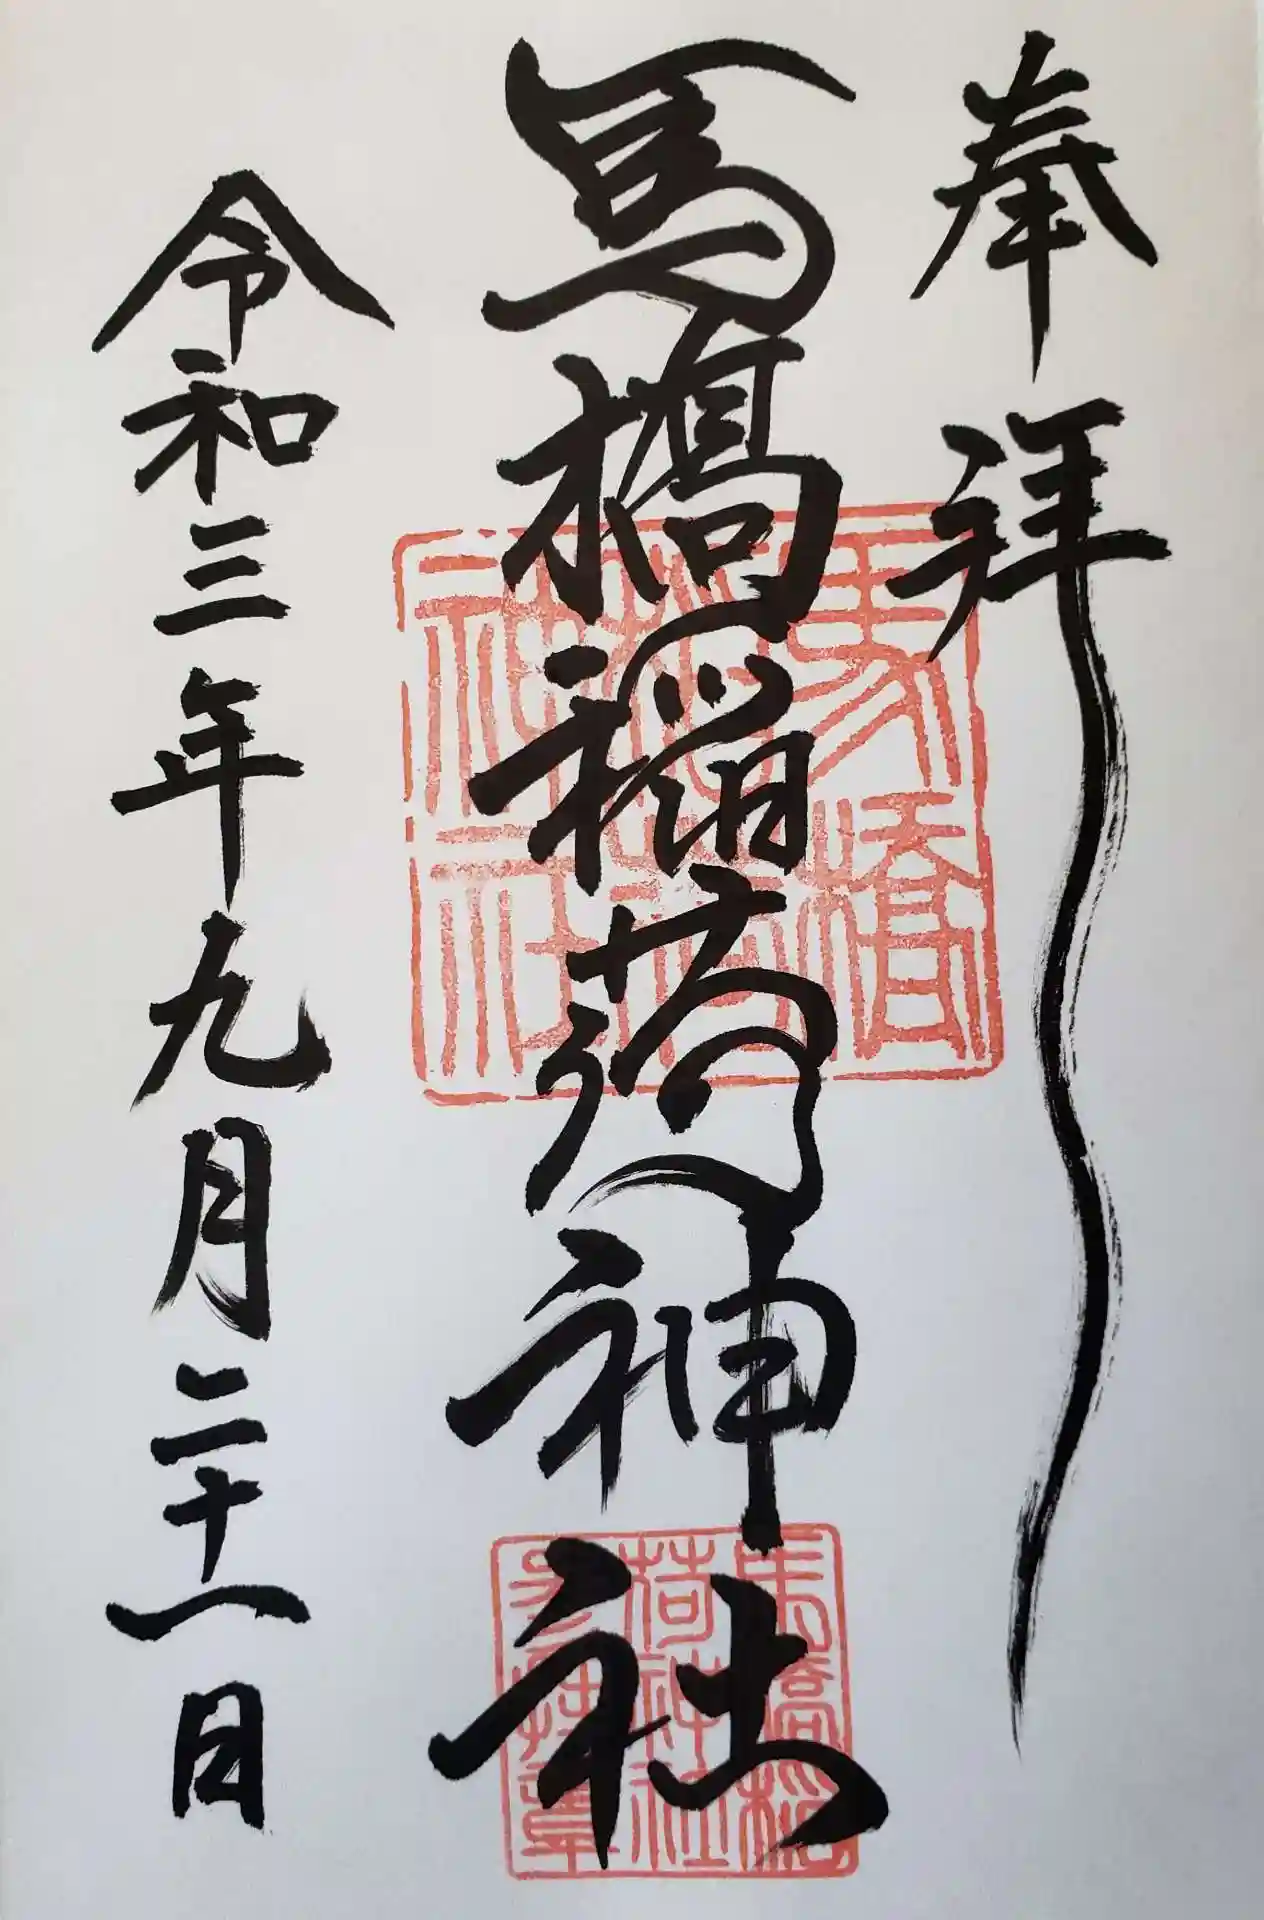 奉拝
馬橋稲荷神社
令和三年九月二十一日
馬橋
稲荷
神社
馬橋稲
荷神社